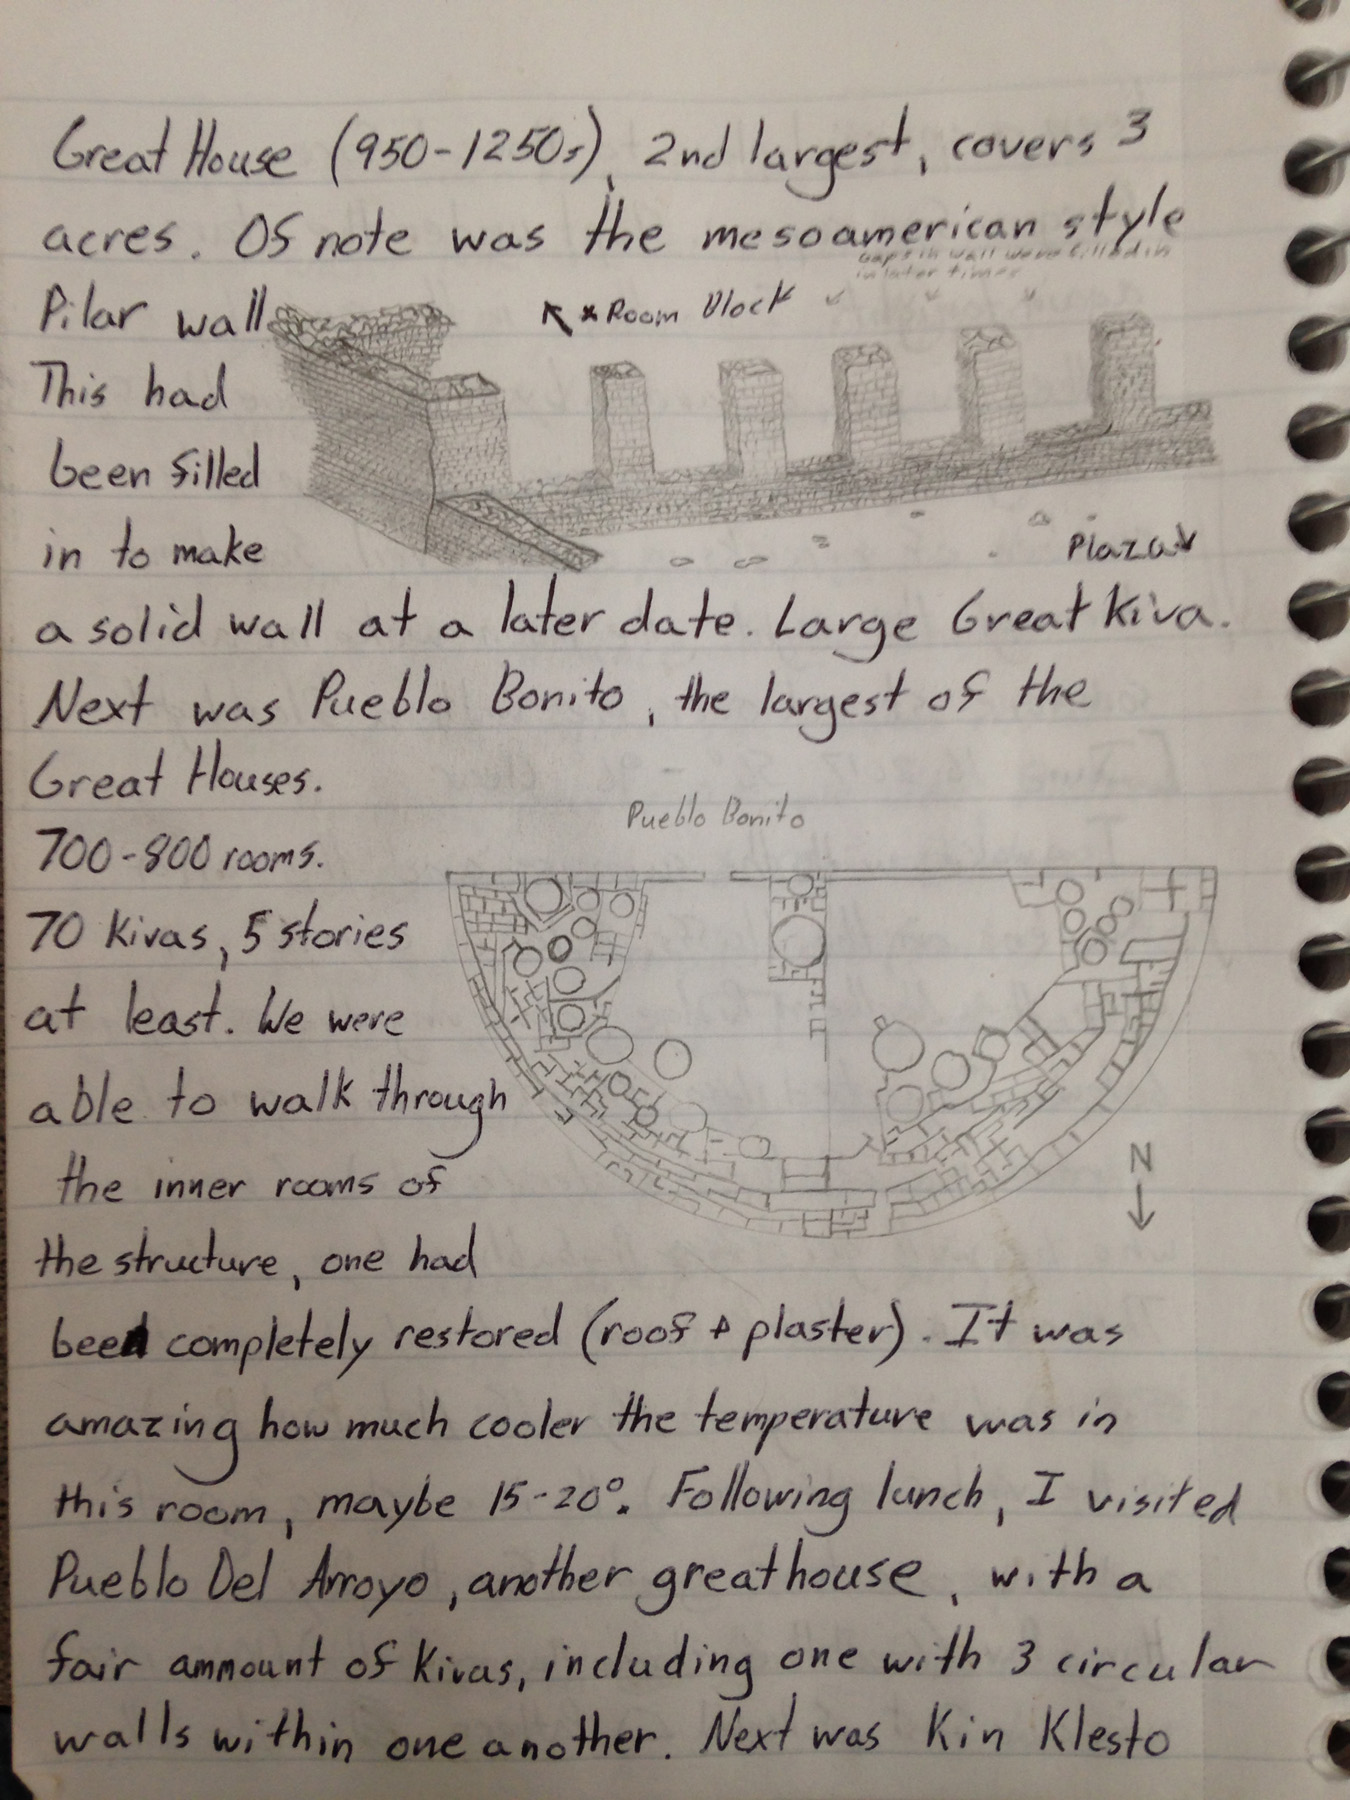 Great House (950-1250s), 2nd largest, covers 3
acres. OS note was the mesoamerican style
gaps in wall were filled in
in later times
Pilar wall
Room Block
This had
been filled
in to make
Plaza
a solid wall at a later date. Large Great Kiva.
Next was Pueblo Bonito, the largest of the
Great Houses.
Pueblo Bonito
700-800 rooms.
70 Kivas, 5 stories
at least. We were
able to walk through
N
the inner rooms of
the structure, one had
been completely restored (roof + plaster). It was
amazing how much cooler the temperature was in
this room, maybe 15-20°. Following lunch, I visited
Pueblo Del Arroyo, another greathouse, with a
fair ammount of Kivas, including one with 3 circular
walls within one another. Next was Kin Klesto